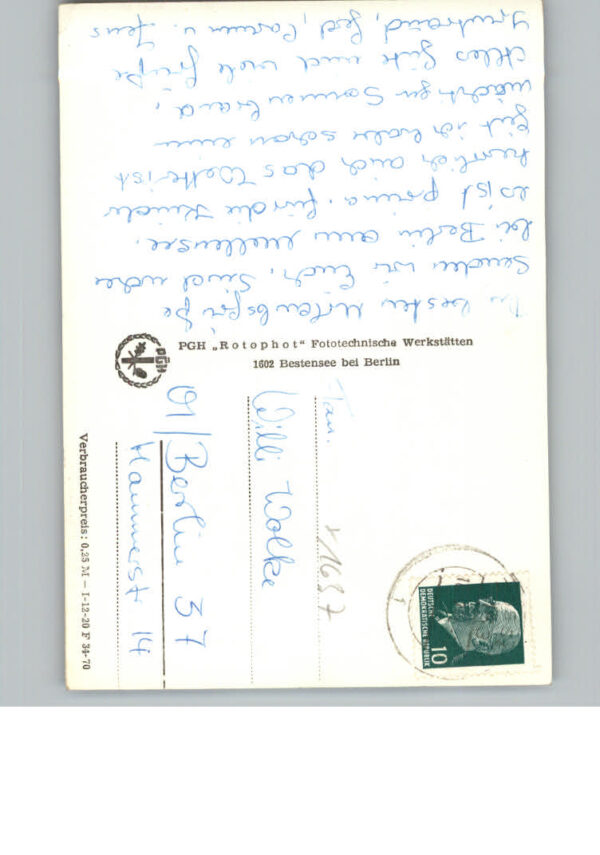 Die besten Urlaubsgrüße
senden wir Euch. Sind wieder
bei Berlin am Mellensee.
es ist prima. für die Kinder
herrlich auch das Wetter ist
gut ich habe schon einen
mächtigen Sonnenbrand.
Alles Gute und viele Grüße
Carmen u. Jens
PGH
PGH „Rotophot“ Fototechnische Werkstätten
1602 Bestensee bei Berlin
Fam.
Willi Wolke
Berlin 37
Hammerstr 14
11637
DEUTSCHE
DEMOKRATISCHE REPUBLIK
10
Verbraucherpreis: 0,25 M — I-12-20 F 34-70